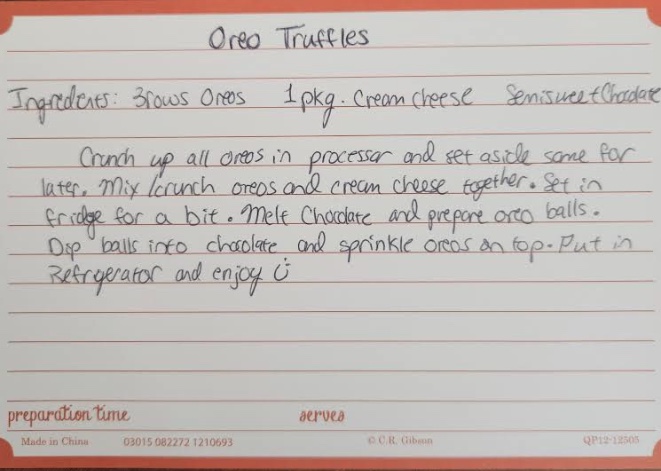 Oreo Truffles
Ingredients: 3rows Oreos 1 pkg. Cream cheese Semisweet Chocolate
Crunch up all oreos in processor and set aside some for
later. Mix /crunch oreos and cream cheese together. Set in
fridge for a bit. Melt Chocolate and prepare oreo balls.
Dip balls into chocolate and sprinkle oreos on top. Put in
Refrigerator and enjoy Ü
preparation time serves
Made in China 03015 082272 1210693 © C.R. Gibson QP12-12505